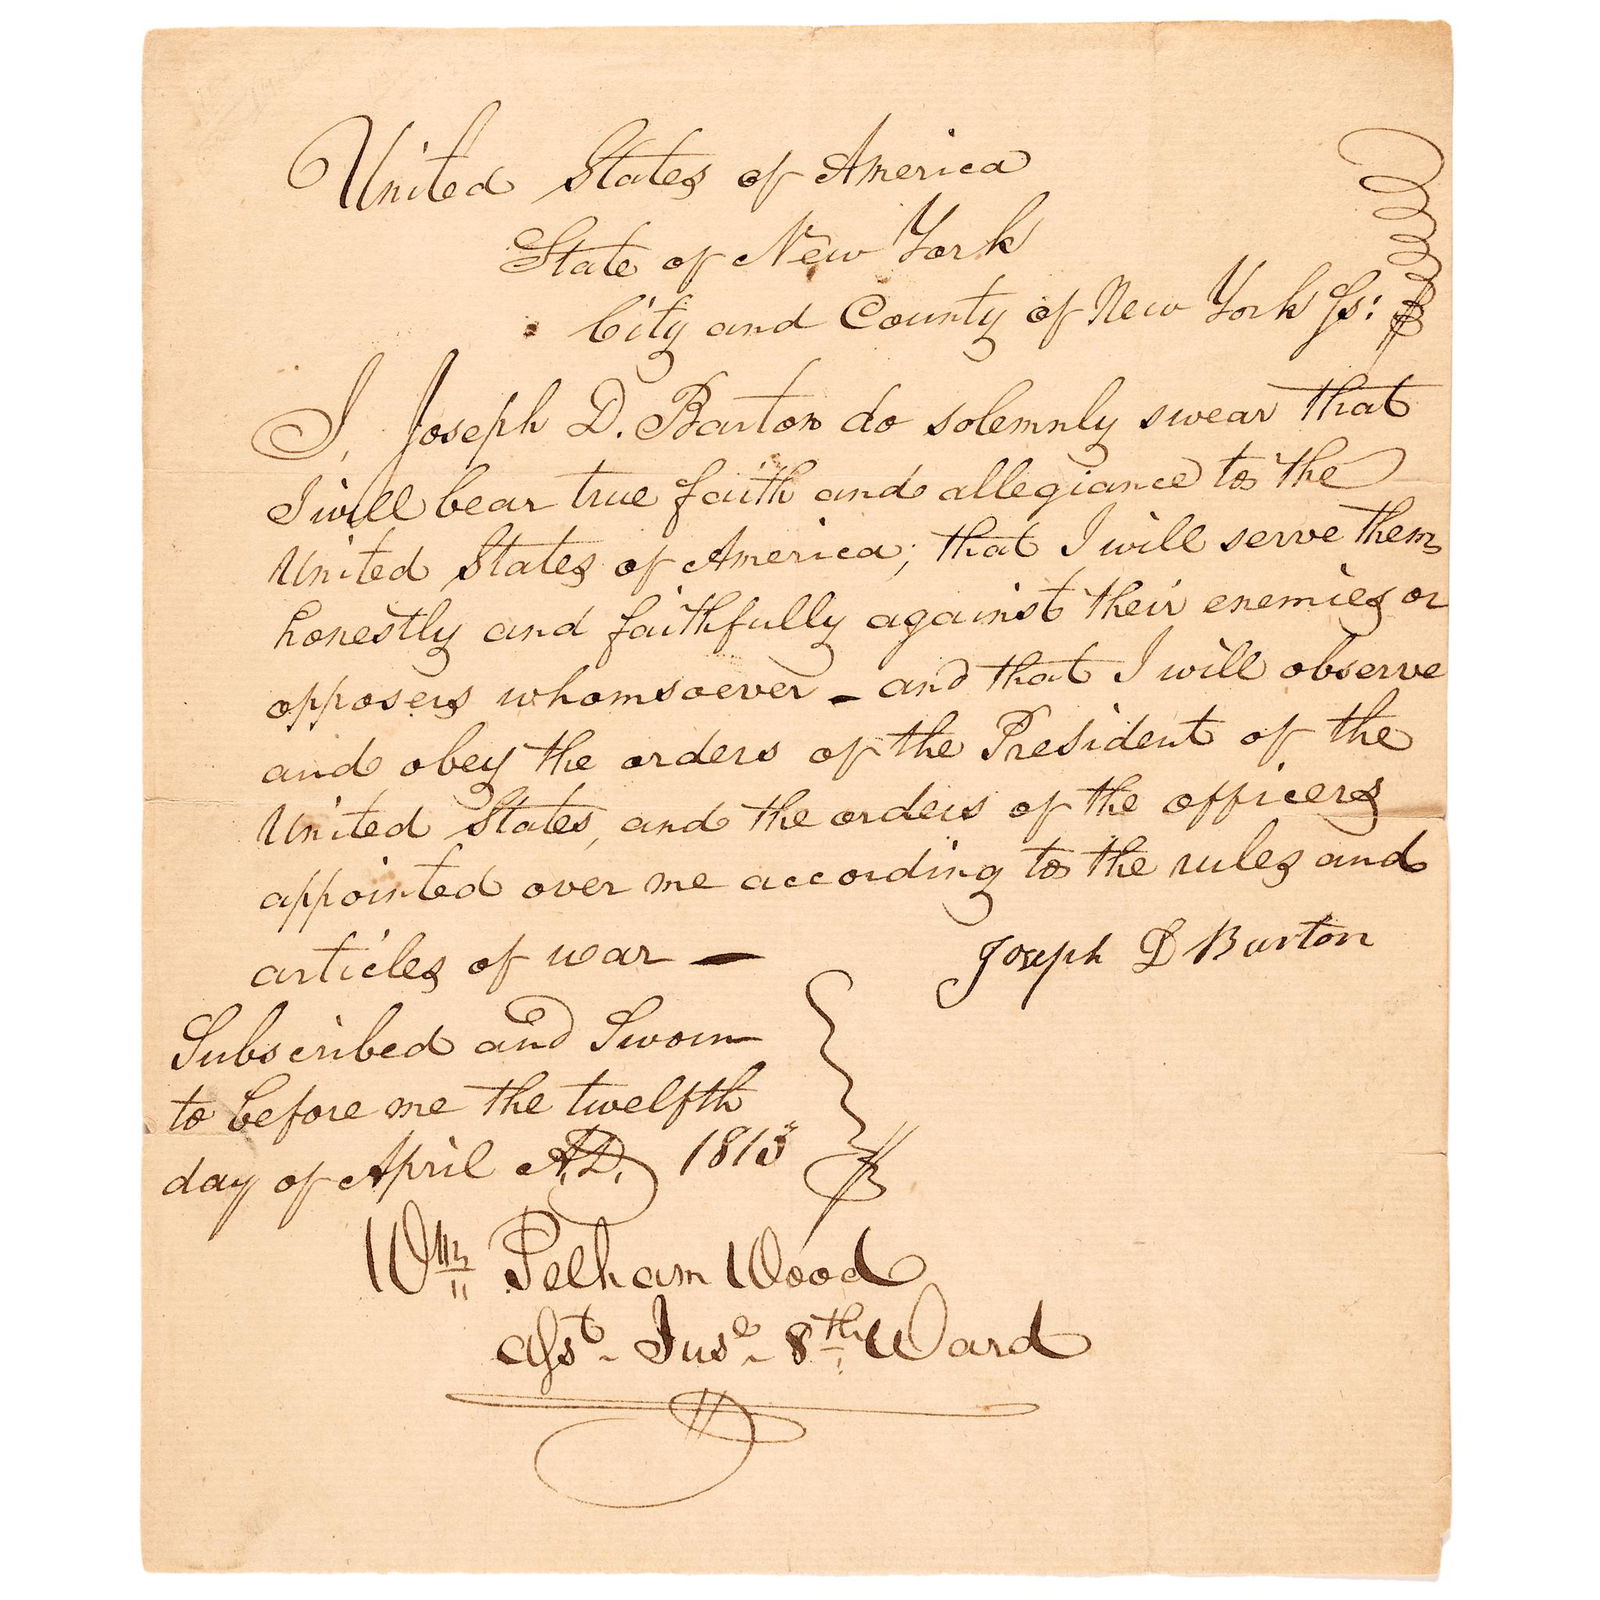 United States of America
State of New York
City and County of New York ss:
I, Joseph D. Barton do solemnly swear that
I will bear true faith and allegiance to the
United States of America; that I will serve them
honestly and faithfully against their enemies or
opposers whomsoever – and that I will observe
and obey the orders of the President of the
United States, and the orders of the officers
appointed over me according to the rules and
articles of war —
Joseph D Barton
Subscribed and Sworn
to before me the twelfth
day of April A.D. 1813
Wm Pelham Wood
Asst. Juse. 8th Ward